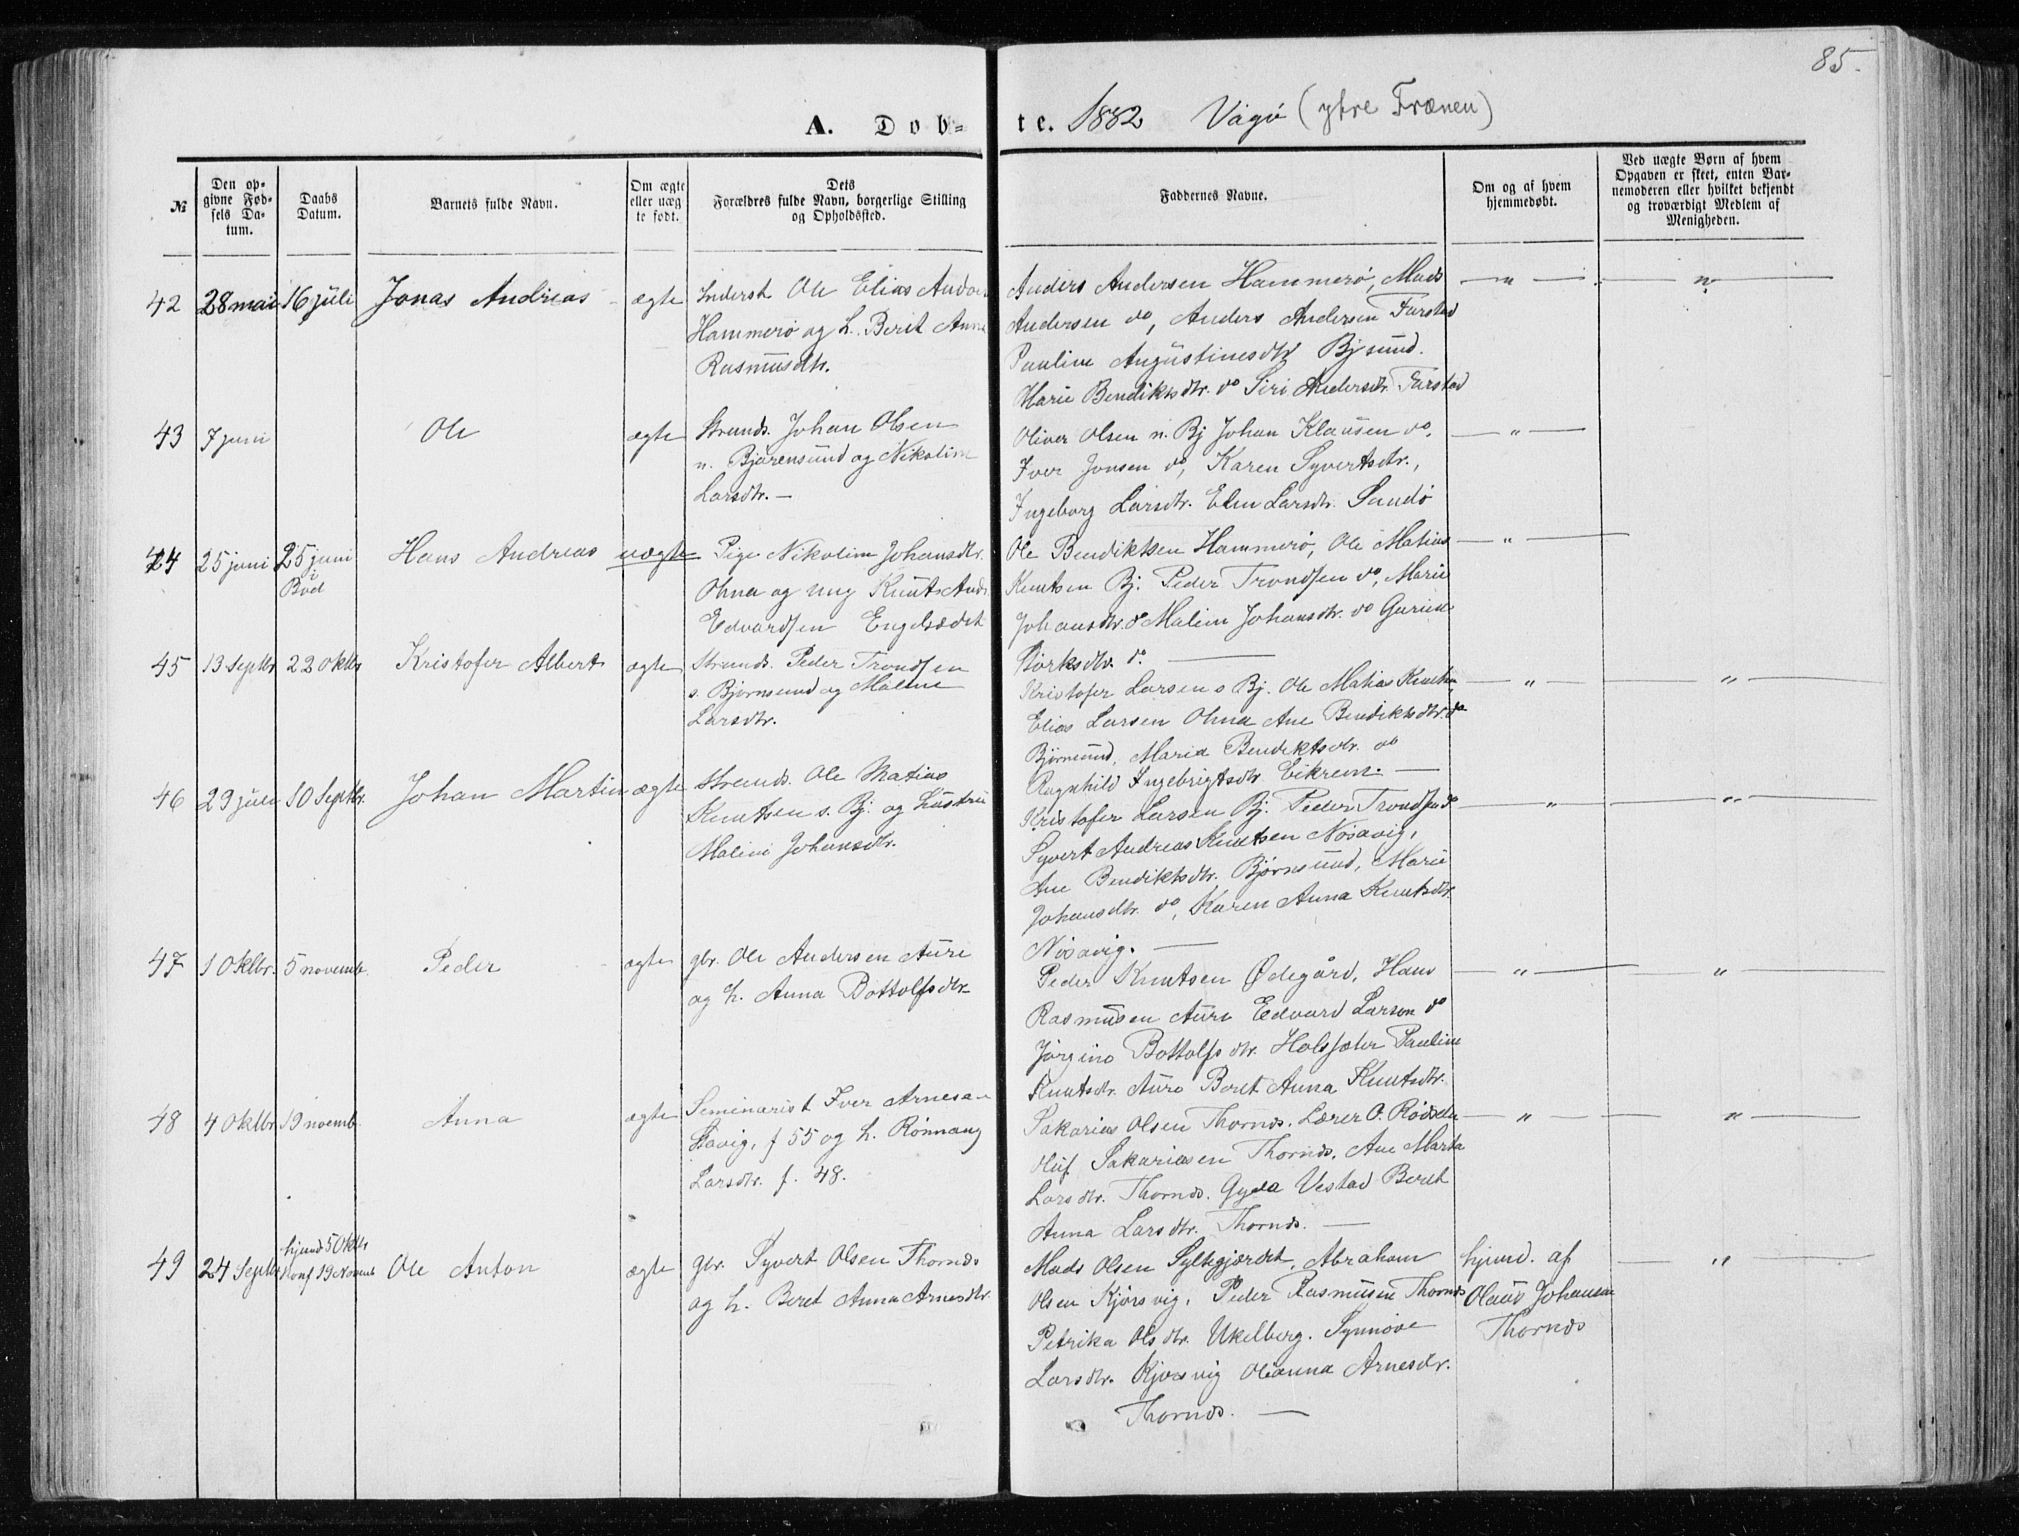 85.
A. Døb-
te. 1882 Vågö (ytre Frænen)
№
Den op-
givne Fød-
sels Da-
tum.
Daabs
Datum.
Barnets fulde Navn.
Om ægte
eller uæg
te født.
Dets
Forældres fulde Navn, borgerlige Stilling
og Opholdssted.
Faddernes Navne.
Om og af hvem
hjemmedøbt.
Ved uægte Børn af hvem
Opgaven er skeet, enten Bar-
nemoderen eller hvilket bekjendt
og troværdigt Medlem af
Menigheden.
42 28 mai 16 juli Jonas Andreas ægte
Inderst Ole Elias
Hammerö og h. Berit Anne
Rasmusdtr.
Anders Andersen Hammerö, Mads
Andersen do, Anders Andersen Farstad
Pauline Augustinesdtr Bjsund.
Marie Bendiktsdtr. do Siri Andersdtr. Farstad
43 7 juni Ole ægte
Strands. Johan Olsen
n. Bjørensund og Nikoline
Larsdtr. —
Oliver Olsen n. Bj Johan Klausen do,
Iver Jonsen do, Karen Syvertsdtr.,
Ingeborg Larsdtr. Elen Larsdtr. Sandö
44 25 juni 25 juni
i
Bud
Hans Andreas uægte
Pige Nikoline Johansdtr.
Ohna og ung Knut And.
Edvardsen Engelsædet
Ole Bendiktsen Hammerö, Ole Matias
Knutsen Bj. Peder Trondsen do, Marie
Johansdtr. do Malene Johansdtr. do Gurine
Störksdtr. do.
45 13 Septbr 22 Oktbr Kristofer Albert ægte
Strands. Peder Trondsen
s. Bjørnsund og Malene
Larsdtr.
Kristofer Larsen s Bj. Ole Matias Knutsen
Elias Larsen Ohna Ane Bendiktsdtr. do
Björnsund, Maria Bendiktsdtr. do
Ragnhild Ingebrigtsdtr Eikrem. —
46 29 juli 10 Septbr. Johan Martin ægte
Strands. Ole Matias
Knutsen s. Bj. og hustru
Maline Johansdtr.
Kristofer Larsen Bj. Peder Trondsen do
Syvert Andreas Knutsen Nösavig,
Ane Bendiktsdtr. Björnsund, Marie
Johansdtr. do, Karen Anna Knutsdtr.
Nösavig. —
47 1 Oktbr. 5 novembr. Peder ægte
gbr. Ole Andersen Aure
og h. Anna Bottolfsdtr
Peder Knutsen Ødegård, Hans
Rasmusen Aure Edvard Larsen do
Jörgine Bottolfsdtr. Holssæter Pauline
Knutsdtr. Aure Beret Anna Knutsdtr.
48 4 Oktbr 19 novemb. Anna ægte
Seminarist Iver Arnesen
Stavig, f 55 og h. Rönnaug
Larsdtr. f. 48.
Sakarias Olsen Thornds. Lærer O. Rödseter
Oluf Sakariasen Thornds. Ane Marta
Larsdtr. Thornds. Gyda Vestad Beret
Anna Larsdtr. Thornds. —
49 24 Septbr
hjemd 5 Oktbr
konf 19 Novemb
Ole Anton ægte
gbr. Syvert Olsen Thornds
og h. Beret Anna Arnesdtr.
Mads Olsen Syltegjærdet, Abraham
Olsen Kjörsvig, Peder Rasmusen Thornds
Petrika Olsdtr. Ukelberg. Synnöve
Larsdtr. Kjörsvig Oleanna Arnesdtr.
Thornds. —
hjemd. af
Olaus Johansen
Thornds